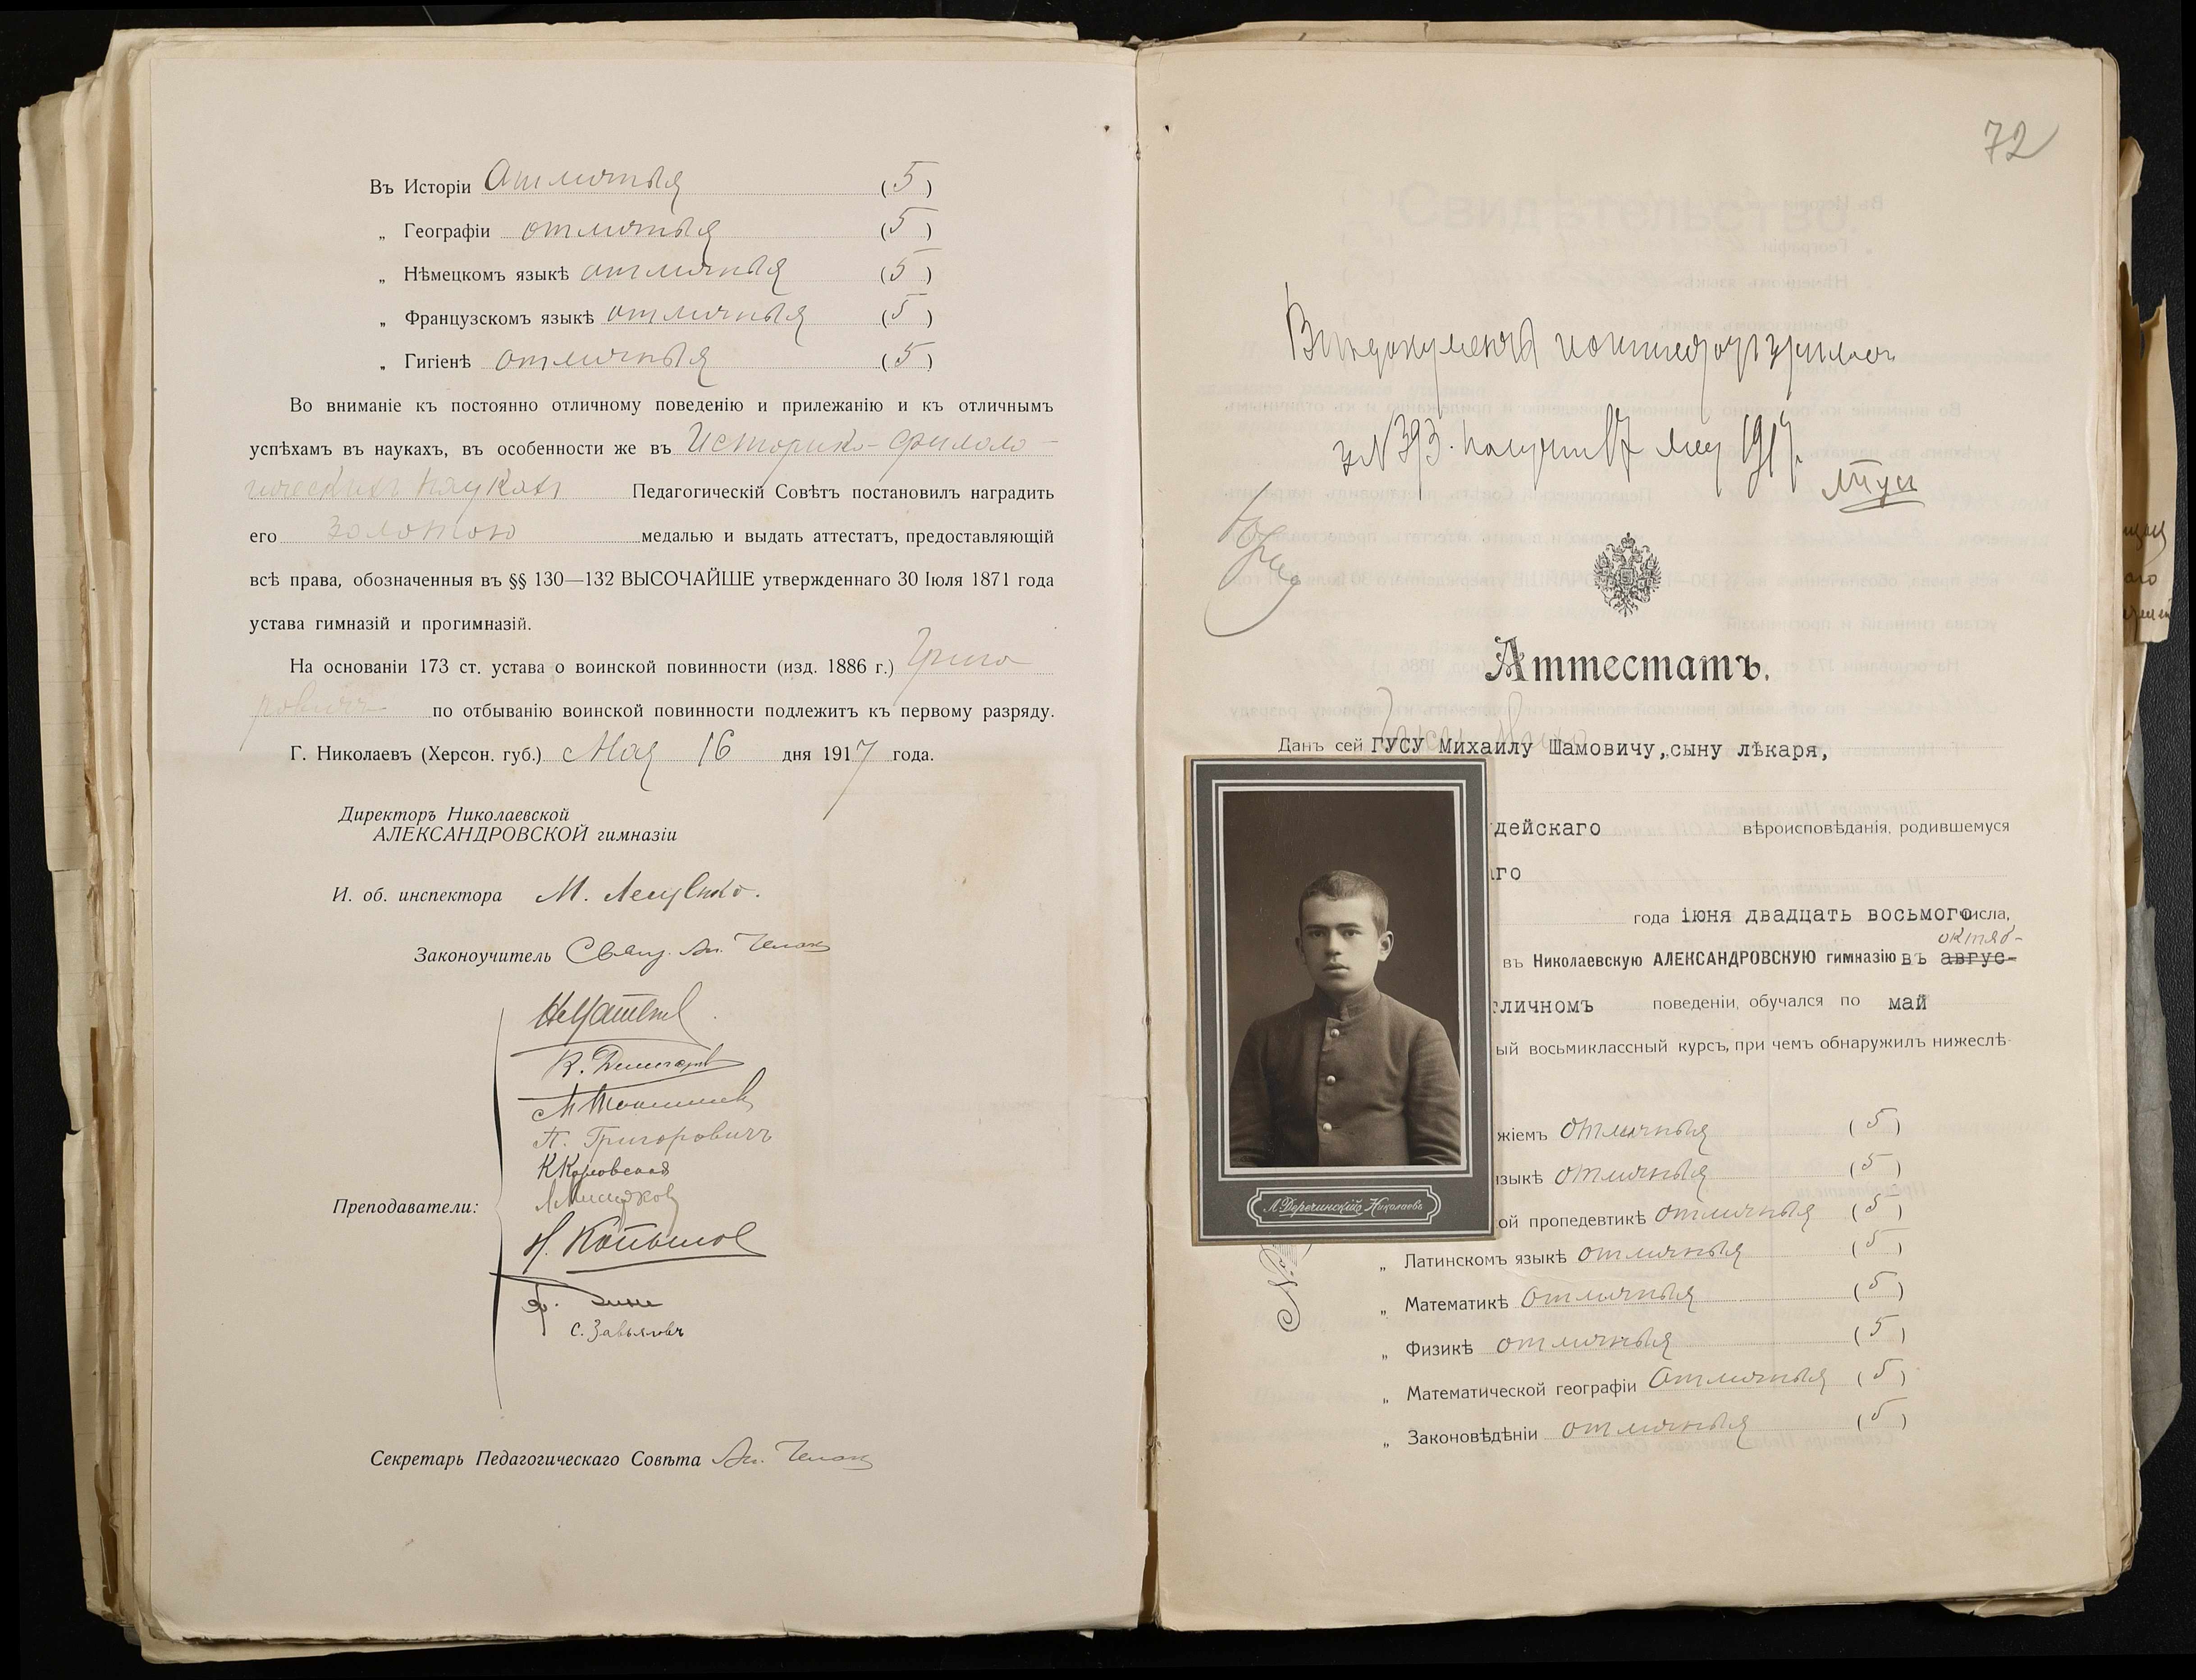 Въ Исторіи отличныя (5)
„ Географіи отличныя (5)
„ Нѣмецкомъ языкѣ отличныя (5)
„ Французскомъ языкѣ отличныя (5)
„ Гигіенѣ отличныя (5)
Во вниманіе къ постоянно отличному поведенію и прилежанію и къ отличнымъ
успѣхамъ въ наукахъ, въ особенности же въ Историко-филоло-
гическихъ наукахъ Педагогическій Совѣтъ постановилъ наградить
его золотою медалью и выдать аттестатъ, предоставляющій
всѣ права, обозначенныя въ §§ 130—132 ВЫСОЧАЙШЕ утвержденнаго 30 Іюля 1871 года
устава гимназій и прогимназій.
На основаніи 173 ст. устава о воинской повинности (изд. 1886 г.) Григо
ровичъ по отбыванію воинской повинности подлежитъ къ первому разряду.
Г. Николаевъ (Херсон. губ.) Мая 16 дня 1917 года.
Директоръ Николаевской
АЛЕКСАНДРОВСКОЙ гимназіи
И. об. инспектора М. Лещенко.
Законоучитель Свящ. Ан.
П. Григоровичъ
Преподаватели:
С. Завьяловъ
Секретарь Педагогическаго Совѣта Ан.
72
№ 393. 17 мая 1917 г.
М Гусъ
Аттестатъ.
Данъ сей ГУСУ Михаилу Шамовичу, сыну лѣкаря,
дейскаго вѣроисповѣданія, родившемуся
аго
года іюня двадцать восьмого числа,
октяб-
въ Николаевскую АЛЕКСАНДРОВСКУЮ гимназію въ авгус-
тличномъ поведеніи, обучался по май
ый восьмиклассный курсъ, при чемъ обнаружилъ нижеслѣ-
жіемъ отличныя (5)
языкѣ отличныя (5)
ой пропедевтикѣ отличныя (5)
„ Латинскомъ языкѣ отличныя (5)
„ Математикѣ отличныя (5)
„ Физикѣ отличныя (5)
„ Математической географіи отличныя (5)
„ Законовѣдѣніи отличныя (5)
Л. Деречинскій Николаевъ
№